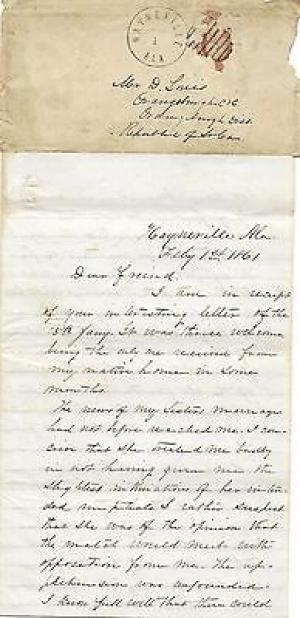 HAYNEVILLE
1
ALA
Mr D. Louis
Orangeburgh C.H.
Orangeburgh Dist
Republic of So. Car.
Hayneville Ala
Feby 1st 1861
Dear Friend.
I am in receipt
of your interesting letter of the
5th Jany. It was thrice welcome
being the only one received from
my native home in some
months.
The news of my Sisters marriage
had not before reached me. I con-
ceive that she treated me badly
in not having given me the
slightest intimations of her inten-
ded nuptials I rather suspect
that she was of the opinion that
the match would meet with
opposition from me. the ap-
prehension was unfounded.
I know full well that there could